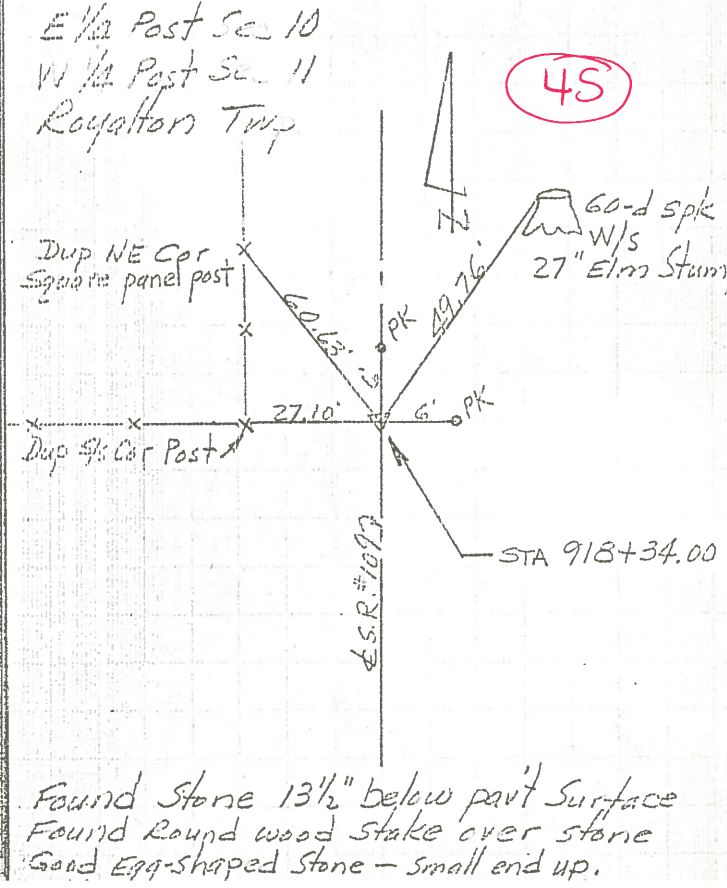 E 1/4 Post Sec 10
W 1/4 Post Sec 11
Royalton Twp
45
N
60-d spk
W/s
27" Elm Stump
Dup NE Cor
Square panel post
60.63'
49.76'
6'
PK
27.10'
6'
PK
Dup Cor Post
STA 918+34.00
℄ S.R. #109
Found Stone 13½" below pav't Surface
Found Round wood stake over stone
Good Egg-shaped Stone - Small end up.